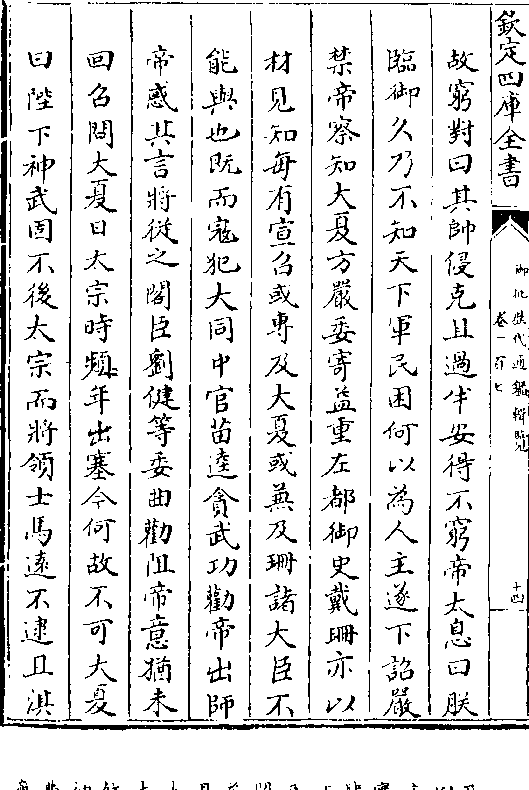 欽定四庫全書
御批歷代通鑑輯覽
卷一百七
十四
故窮對曰其帥侵克且過半安得不窮帝太息曰朕
臨御久乃不知天下軍民困何以為人主遂下詔嚴
禁帝察知大夏方嚴委寄益重左都御史戴珊亦以
材見知每有宣召或專及大夏或兼及珊諸大臣不
能與也既而寇犯大同中官苗逵貪武功勸帝出師
帝惑其言將從之閣臣劉健等委曲勸阻帝意猶未
回召問大夏曰太宗時頻年出塞今何故不可大夏
曰陛下神武固不後太宗而將領士馬遠不逮且淇